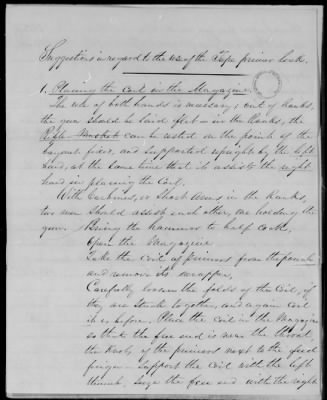 Suggestions in regard to the use of the Tape primer Lock.
1. Placing the coil in the Magazine.
The use of both hands is necessary, & out of ranks,
the gun should be laid flat — in the Ranks, the
Rifle Musket can be rested on the point of the
bayonet fixed, and supported upright by the left
hand, at the same time that it assists the right
hand in placing the Coil.
With Carbines, or Short Arms in the Ranks,
two men should assist each other, one holding the
gun. Bring the hammer to half cock.
Open the Magazine
Take the coil of primers from the pouch
and remove its wrapper.
Carefully loosen the folds of the Coil, if
they are stuck together, and again coil
it as before. Place the coil in the Magazine
so that the free end is near the throat,
the knobs of the primers next to the feed
finger. Support the coil with the left
thumb. Seize the free end with the right